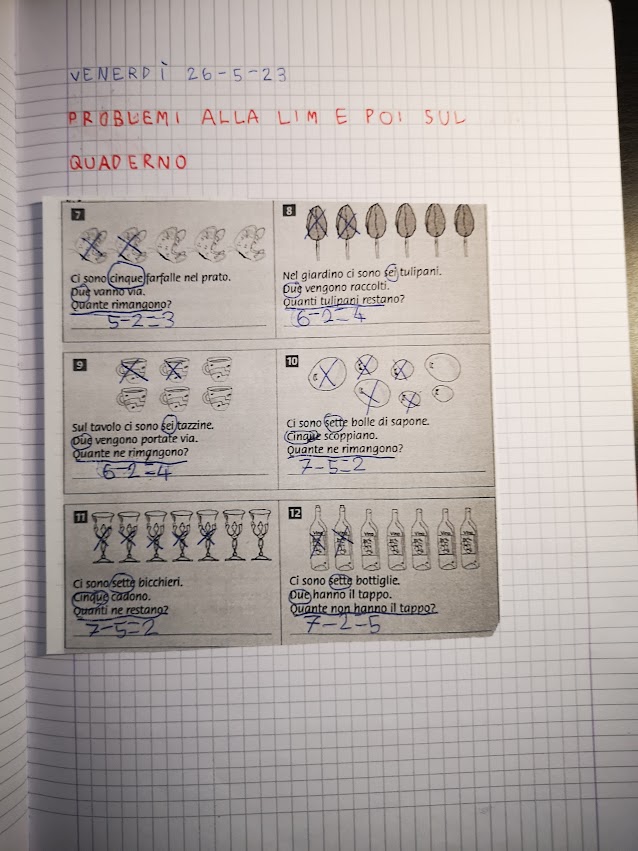 VENERDÌ 26-5-23
PROBLEMI ALLA LIM E POI SUL
QUADERNO
7
Ci sono cinque farfalle nel prato.
Due vanno via.
Quante rimangono?
5-2=3
8
Nel giardino ci sono sei tulipani.
Due vengono raccolti.
Quanti tulipani restano?
6-2=4
9
Sul tavolo ci sono sei tazzine.
Due vengono portate via.
Quante ne rimangono?
6-2=4
10
Ci sono sette bolle di sapone.
Cinque scoppiano.
Quante ne rimangono?
7-5=2
11
Ci sono sette bicchieri.
Cinque cadono.
Quanti ne restano?
7-5=2
12
Ci sono sette bottiglie.
Due hanno il tappo.
Quante non hanno il tappo?
7-2-5